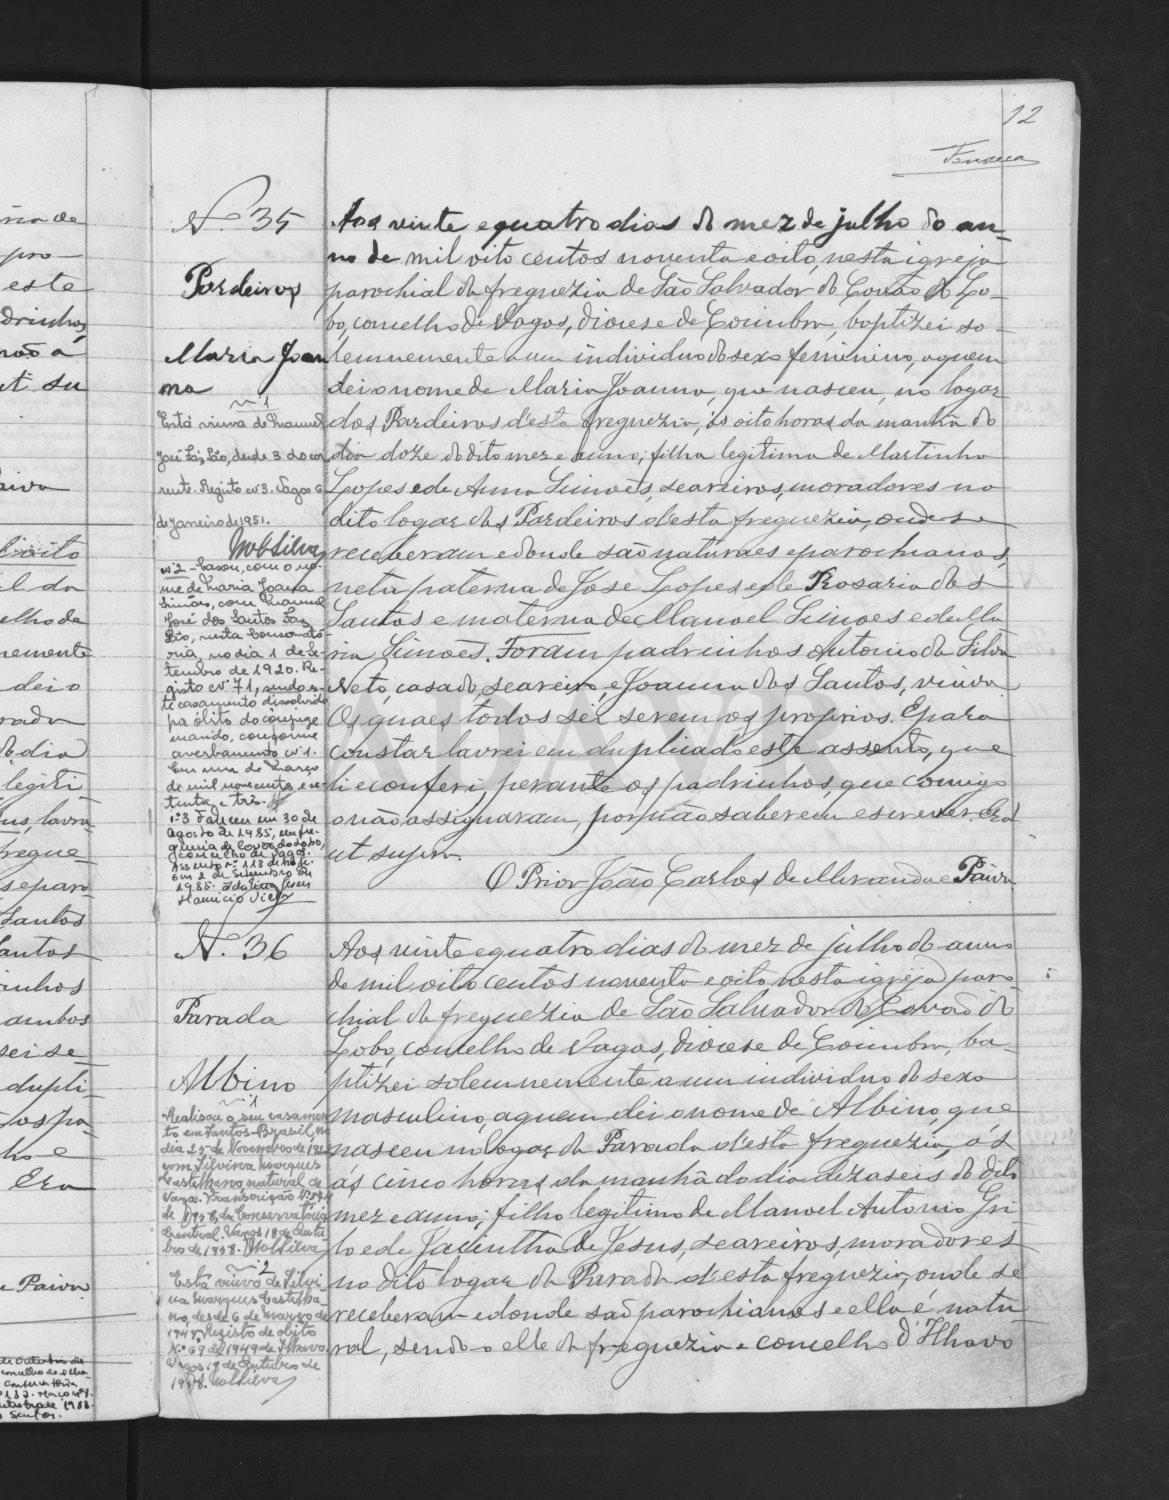 12
Fonseca
Nº 35
Pardeiros
Maria Joan
na
Aos vinte e quatro dias do mez de julho do an-
no de mil oito centos noventa e oito, nesta igreja
parochial da freguezia de São Salvador do Covão do Lo-
bo, concelho de Vagos, diocese de Coimbra, baptizei so-
lemnemente a um individuo do sexo feminino, a quem
dei o nome de Maria Joanna, que nasceu, no logar
dos Pardeiros d'esta freguezia, ás oito horas da manhã do
dia doze do dito mez e anno; filha legitima de Martinho
Lopes e de Anna Simões, seareiros, moradores no
dito logar dos Pardeiros d'esta freguezia, onde se
receberam e donde são naturaes e parochianos,
neta paterna de Jose Lopes e de Rosaria dos
Santos e materna de Manoel Simoes e de Ma
ria Simões. Foram padrinhos Antonio da Silva
Neto, casado, seareiro, e Joanna dos Santos, viuva
Os quaes todos sei serem os proprios. E para
constar lavrei em duplicado este assento, que
li e conferi perante os padrinhos, que comigo
o não assignaram, por não saberem escrever. Era
ut supra.
O Prior João Carlos de Miranda e Paiva
nº 1
Está viuva de Manuel
José Laz, São, desde 3 do cor
rente. Registo nº 3. Vagos 6
de Janeiro de 1951.
MobSilva
nº 2 - Casou, com o no-
me de Maria Joana
Simões, com Manuel
José dos Santos Laz
São, nesta Conservató-
ria, no dia 1 de Se-
tembro de 1920. Re-
gisto nº 71, sendo es-
te casamento dissolvido
por óbito do cônjuge
marido, conforme
averbamento nº 1.
Em um de Março
de mil novecentos e se-
tenta e três.
nº 3 Faleceu em 30 de
Agosto de 1985, em fre-
guesia de Covão do Lobo,
concelho de Vagos.
Assento nº 113 de hoje.
Em 2 de Setembro de
1985.
Nº 36
Parada
Albino
Aos vinte e quatro dias do mez de julho do anno
de mil oito centos noventa e oito nesta igreja paro
chial da freguezia de São Salvador do Covão do
Lobo, concelho de Vagos, diocese de Coimbra, ba-
ptizei solemnemente a um individuo do sexo
masculino, a quem dei o nome de Albino, que
nasceu no logar da Parada d'esta freguezia, ás
ás cinco horas da manhã do dia dezaseis do dito
mez e anno; filho legitimo de Manoel Antonio Gri
lo e de Jacintha de Jesus, seareiros, moradores
no dito logar da Parada d'esta freguezia, onde se
receberam e donde são parochianos e ella é natu
ral, sendo elle da freguezia e concelho d'Ilhavo
nº 1
Realisou o seu casamen
to em Santos-Brasil, no
dia 25 de Novembro de
com Silvina Marques
Castelhano natural de
Vagos. Transcrição
de 1958, da Conservatória
Central. Vagos 18 de Outu
bro de 1958. MobSilva
nº 2
Está viuvo de Silvi
na Marques Castelha
no, desde 6 de Março de
1949. Registo de óbito
Nº 69 de 1949 de Ilhavo.
Vagos 18 de Outubro de
1958. MobSilva